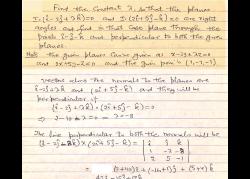 Find the constant λ so that the planes
r.(i-2j+λk)=0 and r.(2i+5j-k)=0 are right
angles and find in that case plane through the
point i-j-k and perpendicular to both the given
planes.
the given planes curve given as x-2y+λz=0
and 2x+5y-z=0 and the given pt is (1,-1,-1)
vectors along the normals to the planes are
i-2j+λk and (2i+5j-k) and they will be
perpendicular if
(i-2j+λk).(2i+5j-k)=0
⇒ 2-10-λ=0 ⇒ λ=-8
The line perpendicular to both the normals will be
(i-2j-8k)×(2i+5j-k) = | i j k |
1 -2 -8
2 5 -1
= (2+40)i+(-16+1)j+(5+4)k